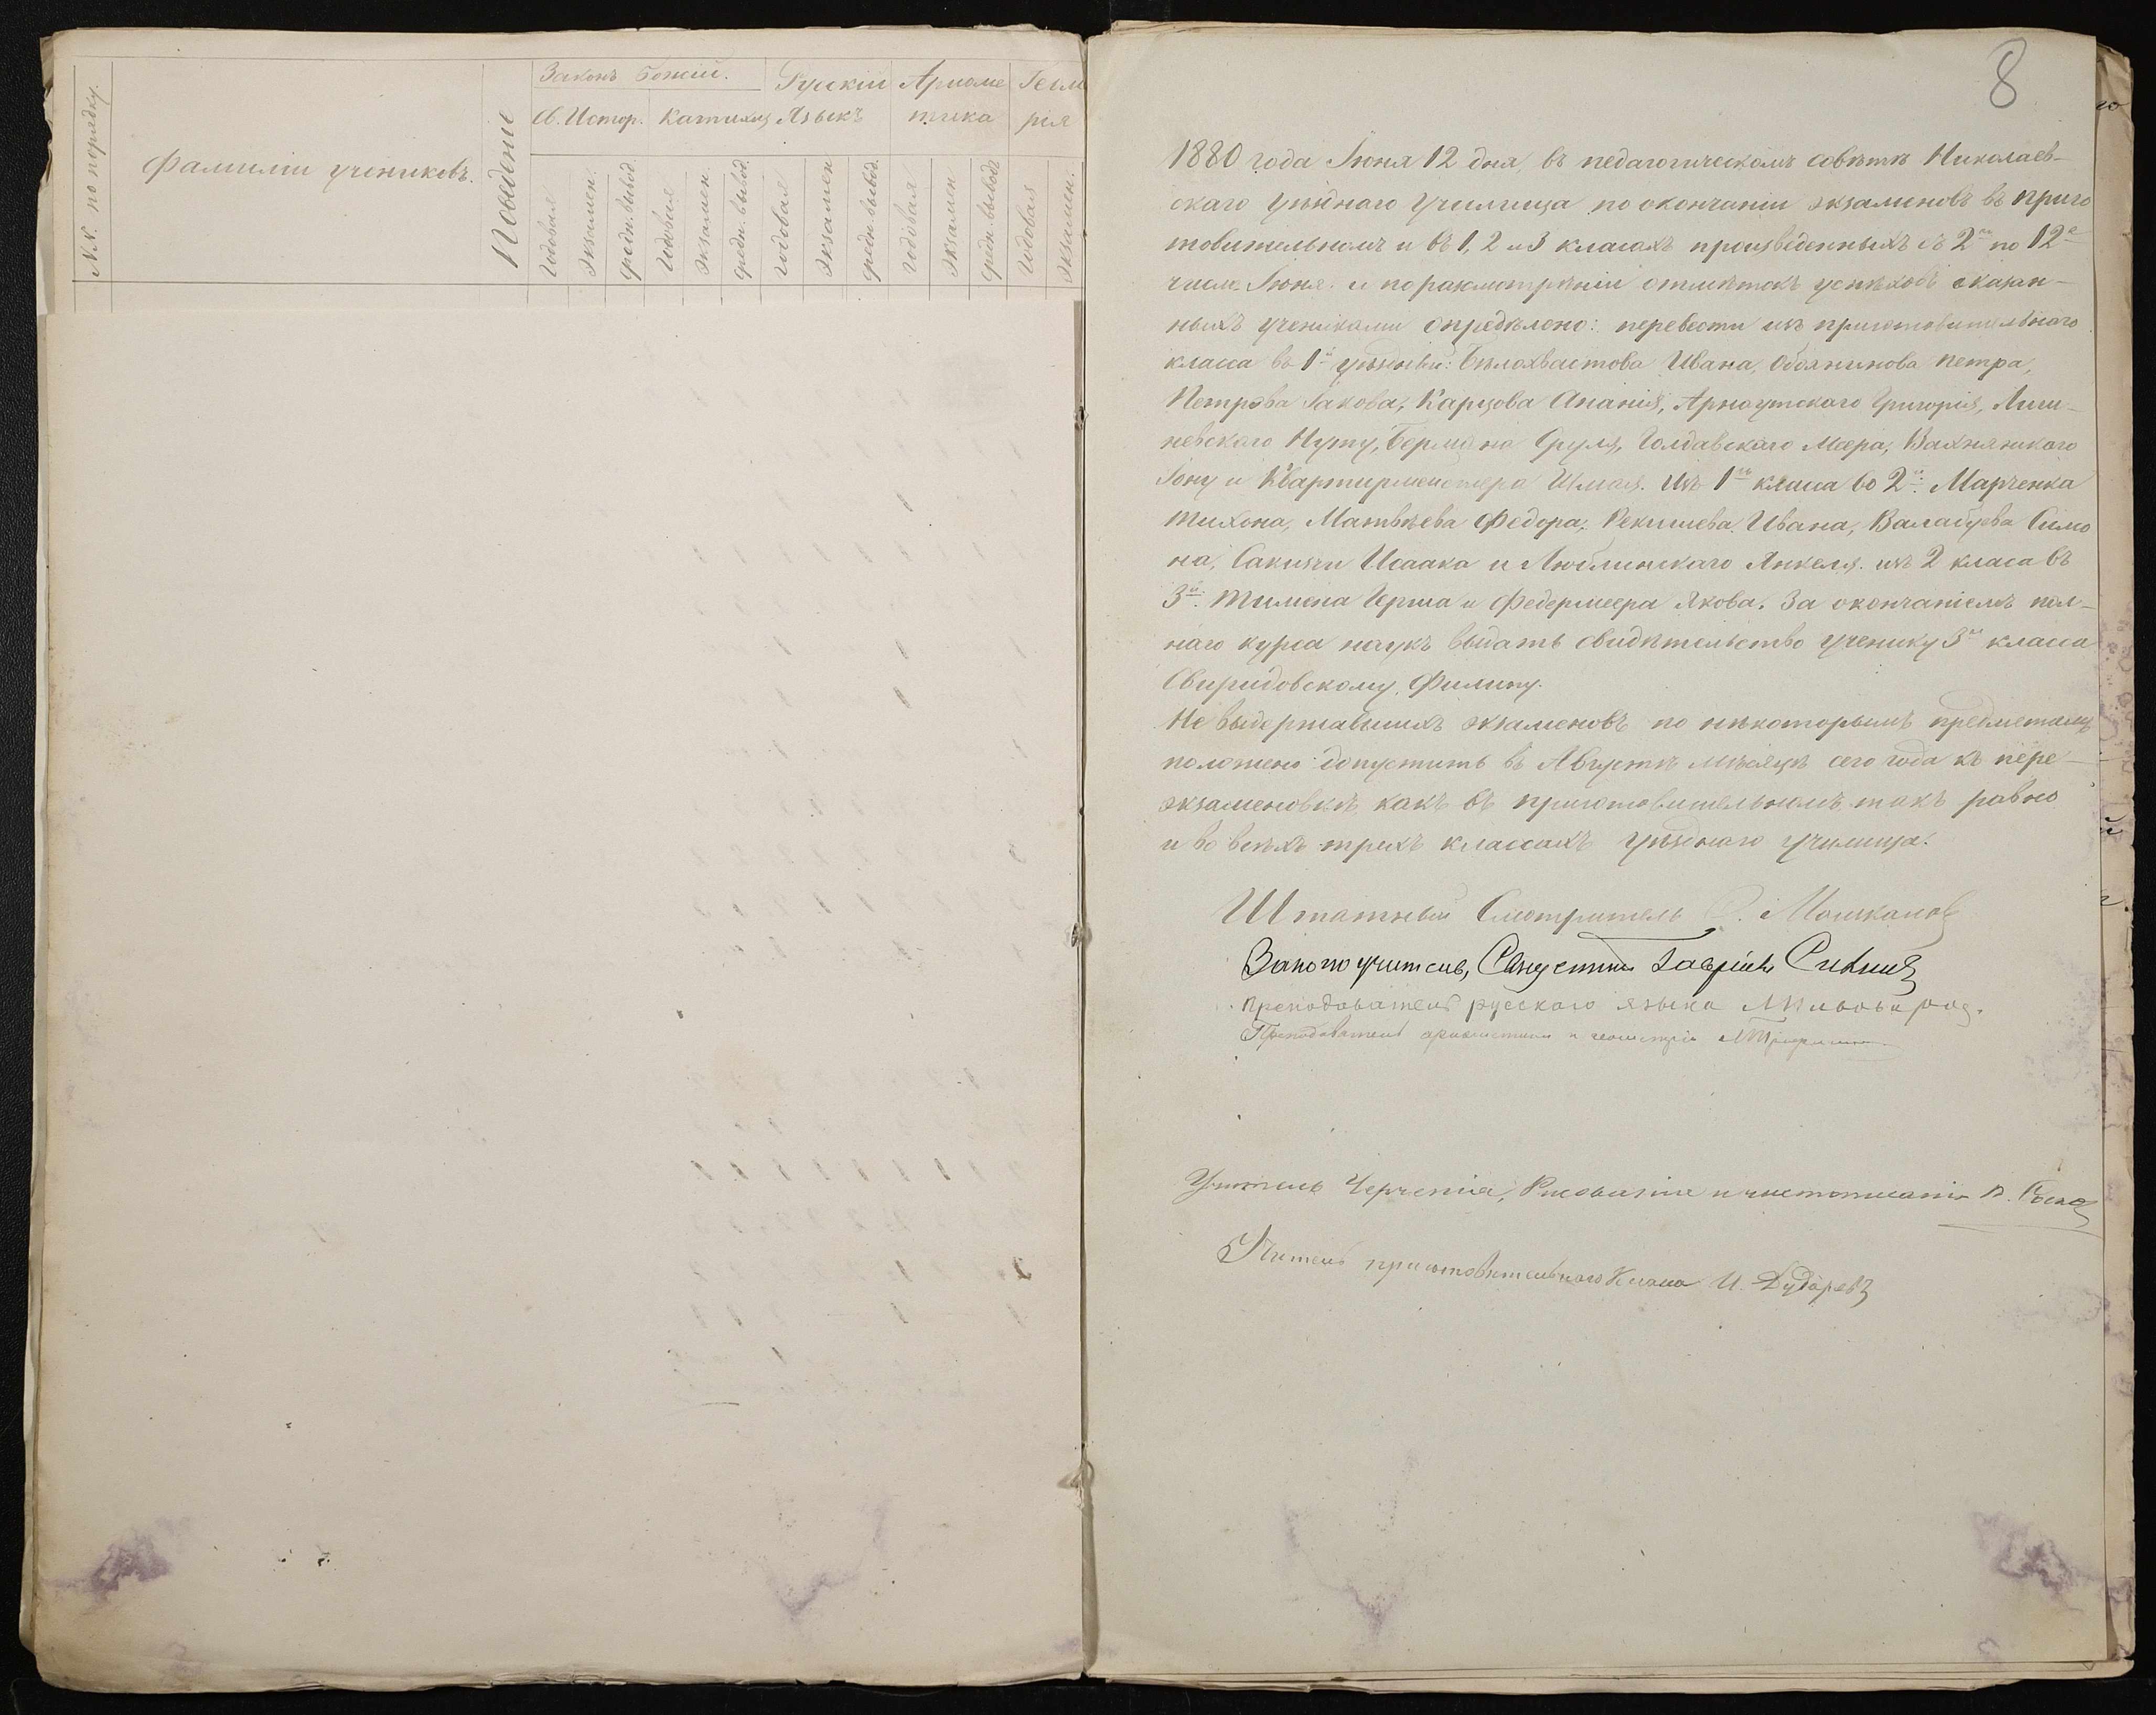 №№. по порядку.
Фамиліи учениковъ.
Поведеніе
Законъ Божій.
Св. Истор.
Катихиз
Русскій
Языкъ
Ариѳме
тика
Геом
рія
Годовая
Экзамен.
Средн. вывод.
Годовая
Экзамен.
Средн. вывод.
Годовая
Экзамен
Средн. вывод.
Годовая
Экзамен
Средн. выводъ
Годовая
Экзамен.
8
1880 года Іюня 12 дня, въ педагогическомъ совѣтѣ Николаев-
скаго уѣзднаго Училища по окончаніи экзаменовъ въ приго
товительномъ и въ 1, 2 и 3 класахъ произведенныхъ съ 2го по 12е
число Іюня и по разсмотрѣніи отмѣтокъ успѣховъ оказан-
ныхъ учениками опредѣлено: перевести изъ приготовительнаго
класса въ 1й уѣздный: Бѣлохвастова Ивана, Обоянинова Петра,
Петрова Іакова, Карцова Ананія, Арнаутскаго Григорія, Личи-
невскаго Нуту, Бермана Сруля, Голдавскаго Меера, Вахнянскаго
Іону и Квартирмейстера Шмая. Изъ 1го класа во 2й: Марченка
Тихона, Матвѣева Федора, Рекишева Ивана, Валабуева Симо
на, Сакизчи Исаака и Люблинскаго Янкеля. изъ 2 класа въ
3й: Тимена Герша и Федермеера Якова. За окончаніемъ пол-
наго курса наукъ выдать свидѣтельство ученику 3го класса
Свиридовскому Филипу.
Не выдержавшихъ экзаменовъ по нѣкоторымъ предметамъ
положено допустить въ Августѣ мѣсяцѣ сего года къ пере-
экзаменовкѣ какъ въ приготовительномъ такъ равно
и во всѣхъ трехъ классахъ уѣзднаго училища.
Штатный Смотритель С. Мошкалов
Законоучитель, Священникъ Гавріилъ
Преподаватель русскаго языка
Преподаватель ариѳметики и геометріи
Учитель Черченія, Рисованія и чистописанія
Учитель приготовительнаго Класса И. Дударевъ